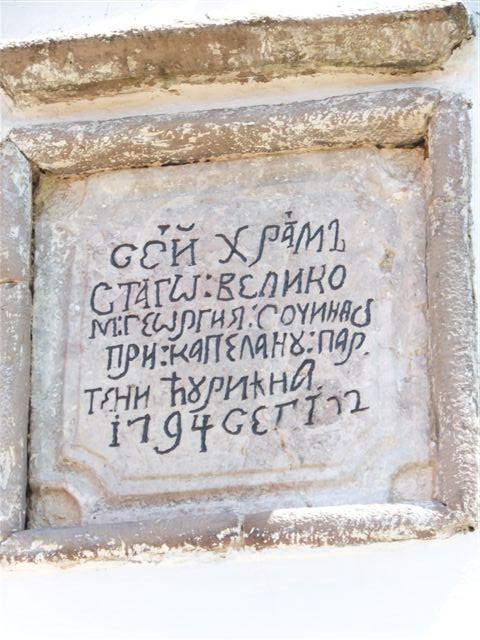 сей храмъ
стагѡ : велико
м : геѡргия . сочинас
при : капелану : пар .
тени ћурикна .
1794 сегт 12